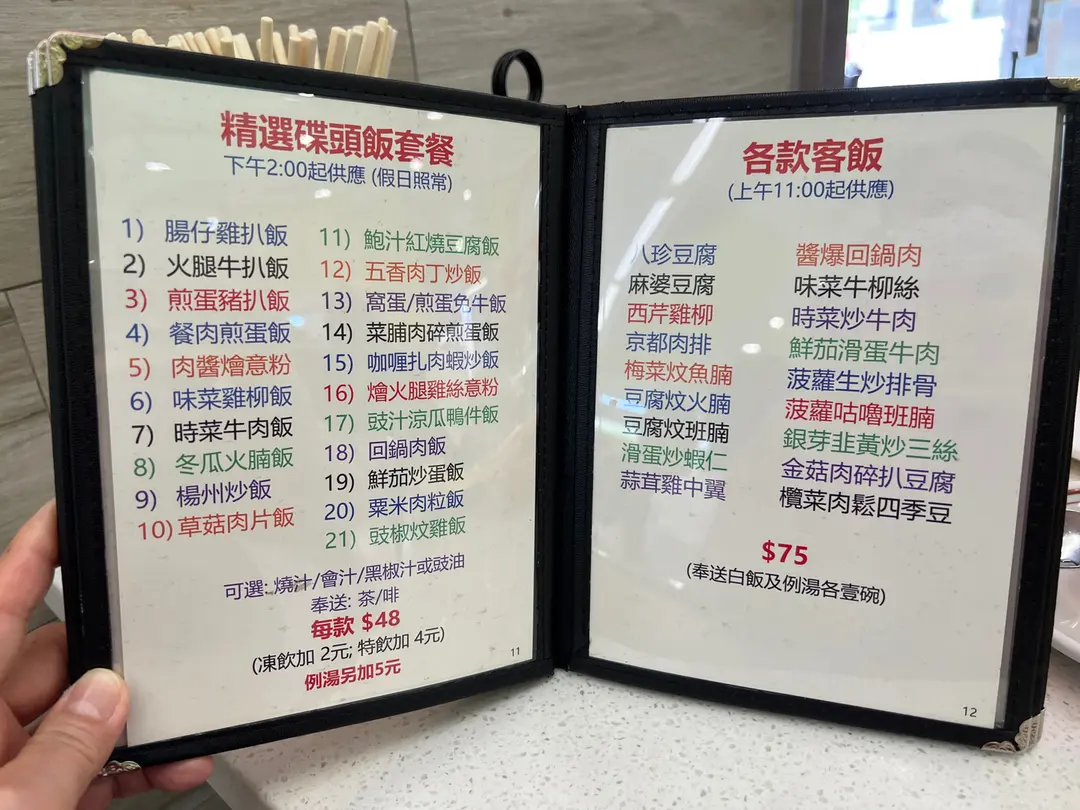 精選碟頭飯套餐
下午2:00起供應 (假日照常)
1) 腸仔雞扒飯
2) 火腿牛扒飯
3) 煎蛋豬扒飯
4) 餐肉煎蛋飯
5) 肉醬燴意粉
6) 味菜雞柳飯
7) 時菜牛肉飯
8) 冬瓜火腩飯
9) 楊州炒飯
10) 草菇肉片飯
11) 鮑汁紅燒豆腐飯
12) 五香肉丁炒飯
13) 窩蛋/煎蛋免牛飯
14) 菜脯肉碎煎蛋飯
15) 咖喱扎肉蝦炒飯
16) 燴火腿雞絲意粉
17) 豉汁涼瓜鴨件飯
18) 回鍋肉飯
19) 鮮茄炒蛋飯
20) 粟米肉粒飯
21) 豉椒炆雞飯
可選: 燒汁/會汁/黑椒汁或豉油
奉送: 茶/啡
每款 $48
(凍飲加 2元; 特飲加 4元)
例湯另加5元
11
各款客飯
(上午11:00起供應)
八珍豆腐
麻婆豆腐
西芹雞柳
京都肉排
梅菜炆魚腩
豆腐炆火腩
豆腐炆班腩
滑蛋炒蝦仁
蒜茸雞中翼
醬爆回鍋肉
味菜牛柳絲
時菜炒牛肉
鮮茄滑蛋牛肉
菠蘿生炒排骨
菠蘿咕嚕班腩
銀芽韭黃炒三絲
金菇肉碎扒豆腐
欖菜肉鬆四季豆
$75
(奉送白飯及例湯各壹碗)
12